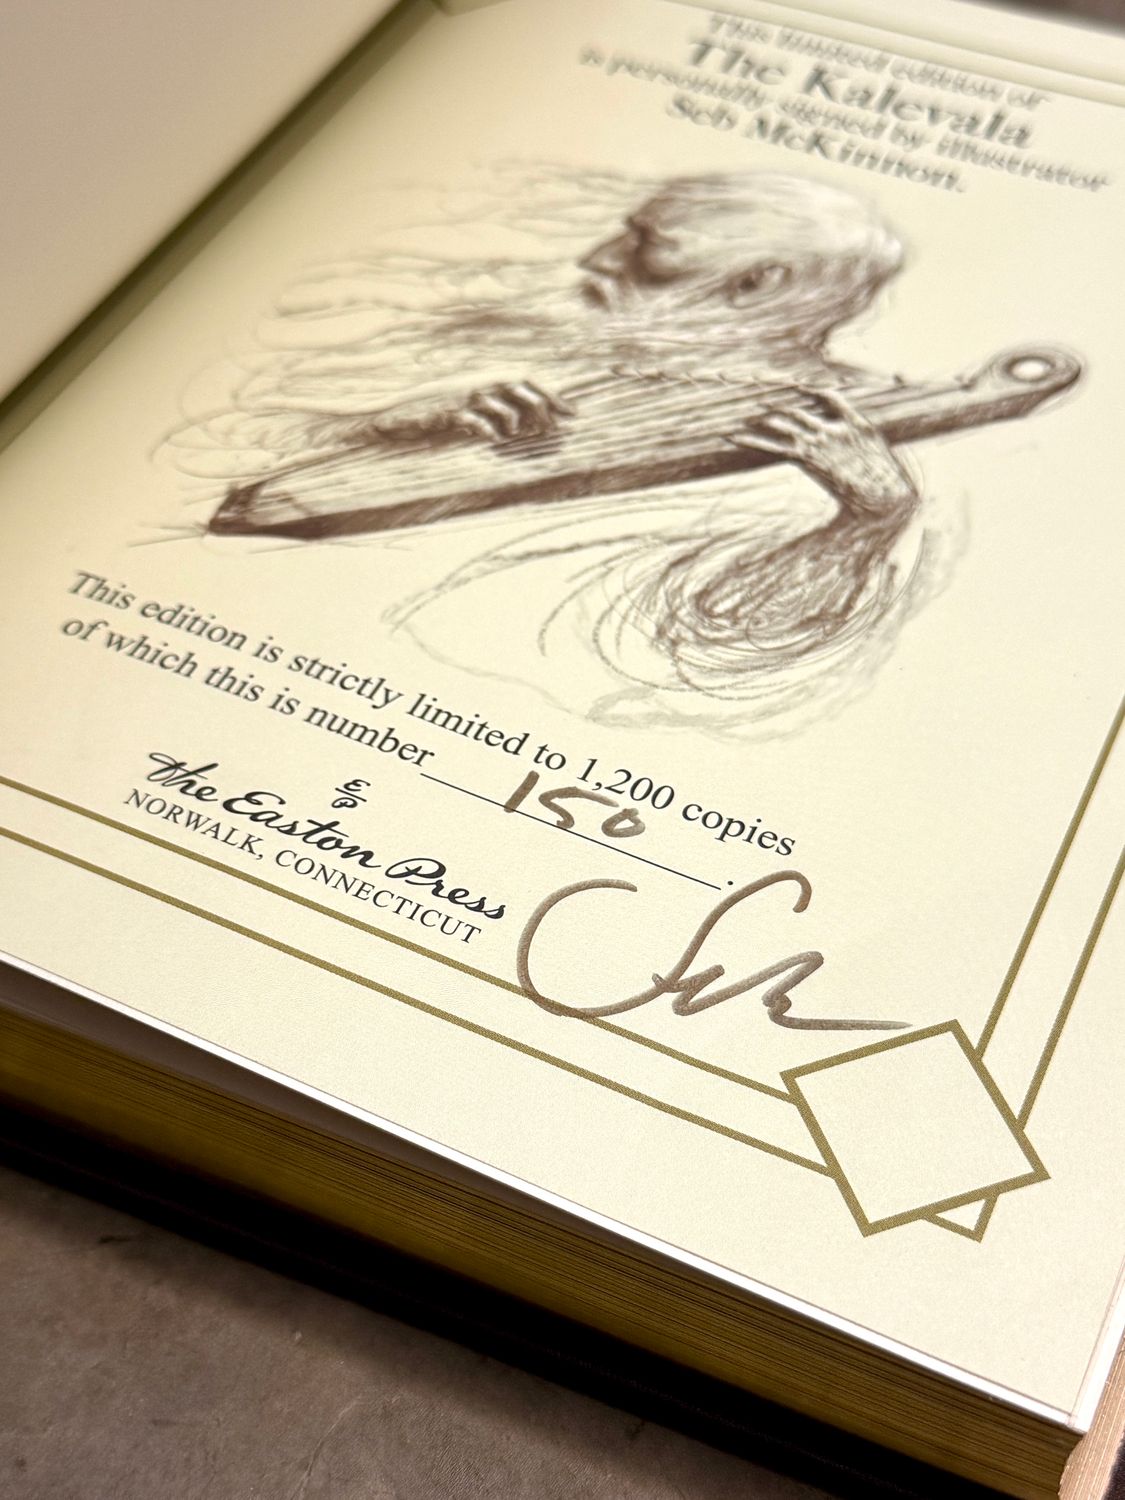 This limited edition of
The Kalevala
is personally signed by illustrator
Seb McKinnon.
This edition is strictly limited to 1,200 copies
of which this is number 150.
E
P
The Easton Press
NORWALK, CONNECTICUT